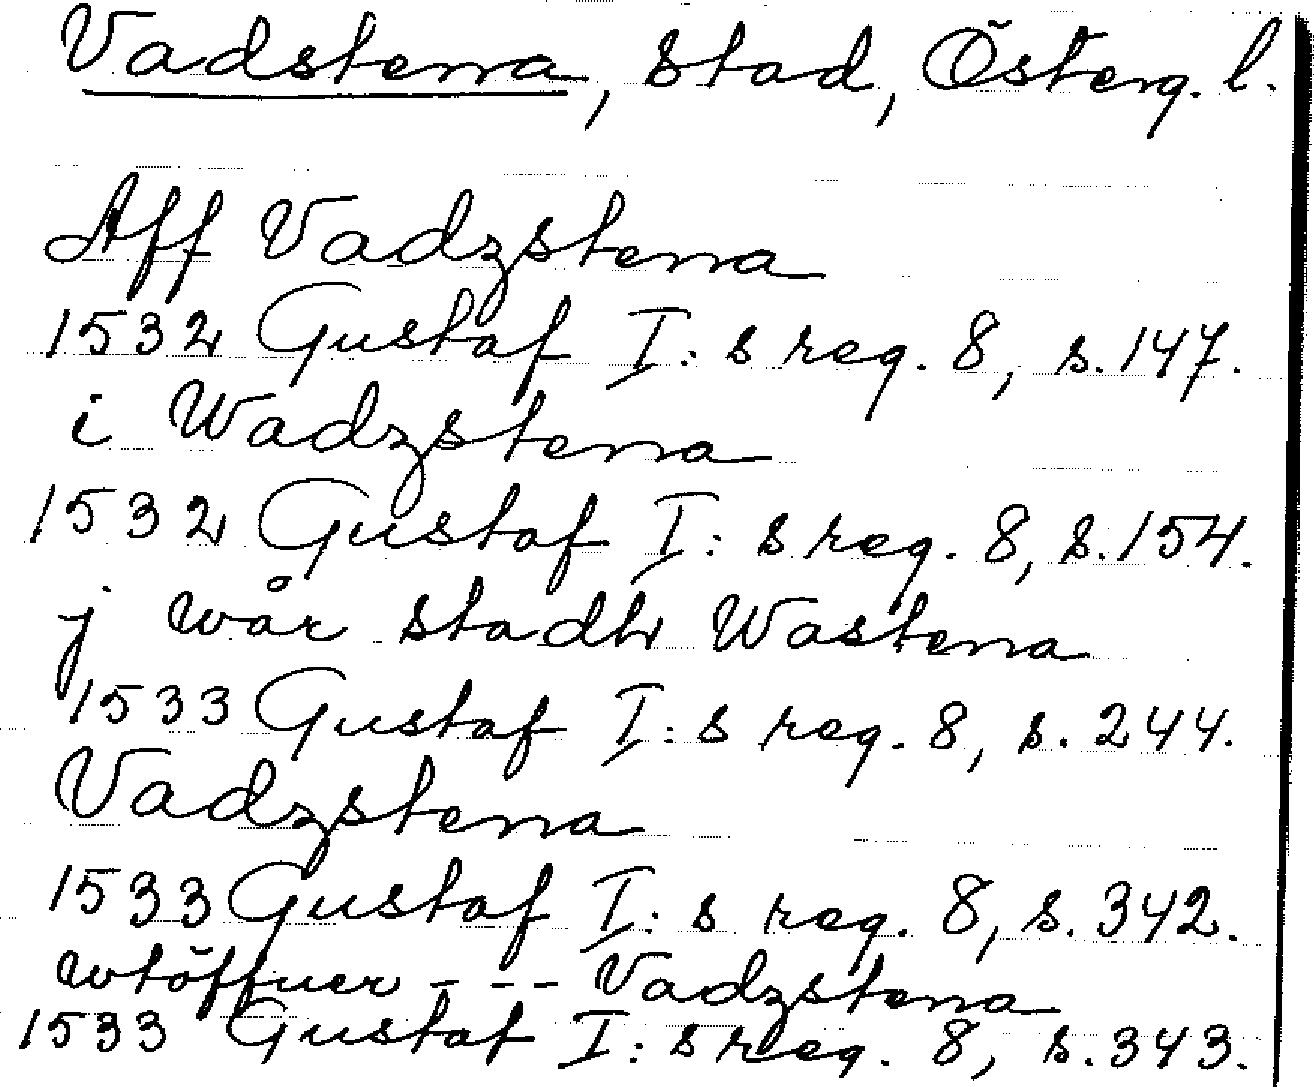 Vadstena, stad, Österg. l.
Aff Vadzstena
1532 Gustaf I:s reg. 8, s. 147.
i Wadzstena
1532 Gustaf I:s reg. 8, s. 154.
j wår stadh Wastena
1533 Gustaf I:s reg. 8, s. 244.
Vadzstena
1533 Gustaf I:s reg. 8, s. 342.
wtöffuer - - - Vadzstena
1533 Gustaf I:s reg. 8, s. 343.